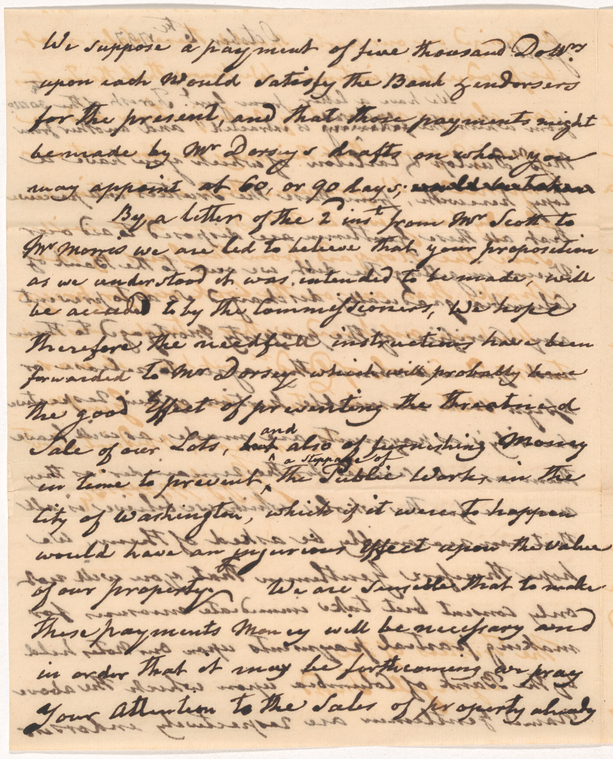 We suppose a payment of five thousand Dollrs
upon each Would satisfy the Bank & endorsers
for the present, and that those payments might
be made by Mr Dorsey's drafts on whom you
may appoint at 60, or 90 days;
By a letter of the 2d inst from Mr Scott to
Mr Morris we are led to believe that your proposition
as we understood it was intended to be made, will
be acceded to by the Commissioners, We hope
therefore the needfull instructions have been
forwarded to Mr Dorsey which will probably have
the good Effect of preventing the threatned
Sale of our Lots, but and also of furnishing Money
in time to prevent a stoppage of the Public Works in the
City of Washington, which if it were to happen
would have an injurious Effect upon the value
of our property. We are Sensible that to make
these payments Money will be necessary and
in order that it may be forthcoming we pray
Your Attention to the Sales of property already